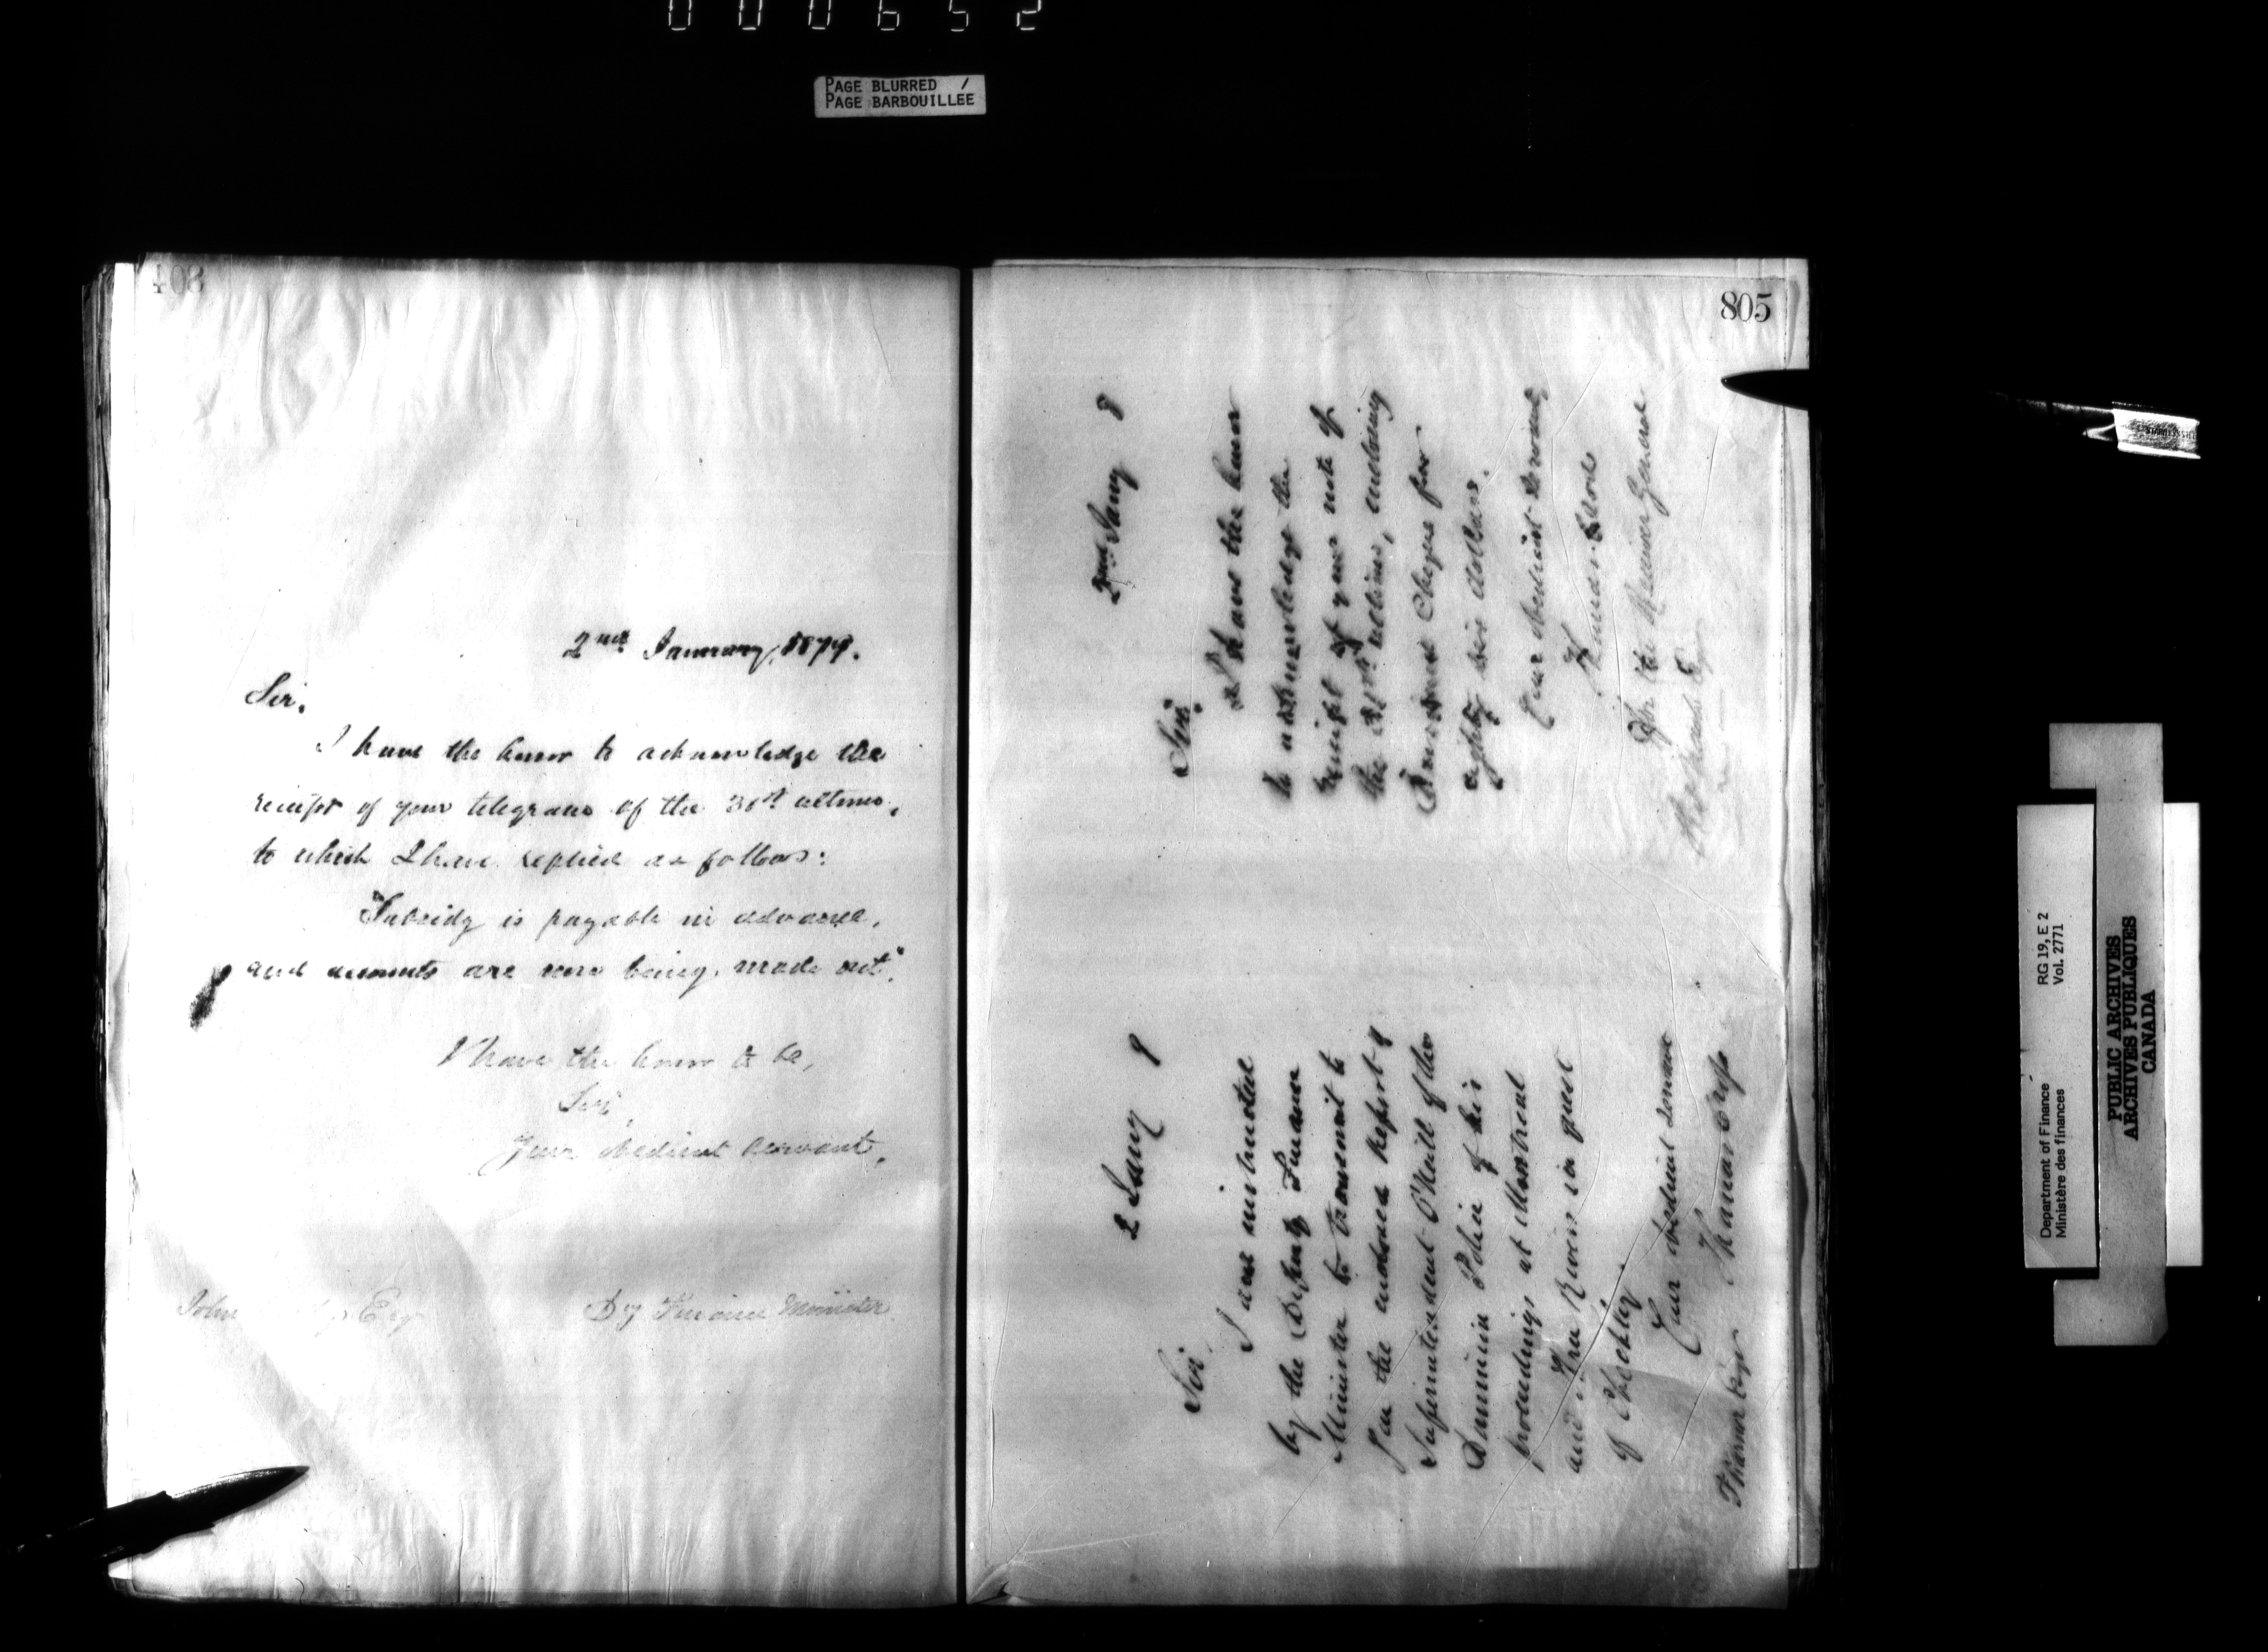 000652
PAGE BLURRED /
PAGE BARBOUILLEE
408
2nd January, 1879.
Sir,
I have the honor to acknowledge the
receipt of your telegram of the 30th ultimo,
to which I have replied as follows:
"Subsidy is payable in advance,
and accounts are now being made out".
I have the honor to be,
Sir,
Your obedient servant,
Dy Finance Minister
John Esq
805
2nd Jany 9
Sir,
I have the honor
to acknowledge the
receipt of your note of
the 31st ultimo, enclosing
cheque for
eighty six dollars.
Your obedient servant
For the Receiver General
Esq
2 Jany 9
Sir
I am instructed
by the Deputy Finance
Minister to transmit to
you the enclosed report of
Superintendent O'Neill of the
Dominion Police of his
proceedings at Montreal
and Three Rivers in quest
of
Your obedient servant
Thomas
Department of Finance RG 19, E 2
Ministère des finances Vol. 2771
PUBLIC ARCHIVES
ARCHIVES PUBLIQUES
CANADA